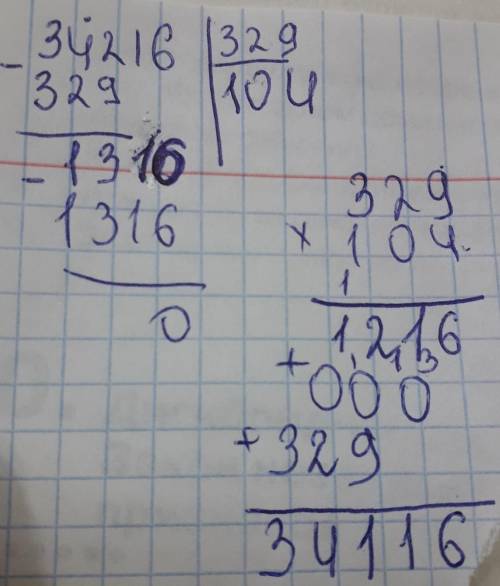 - 34216 | 329
329 | 104
- 1316
1316
0
329
× 104
1
1216
1 1 3
+ 000
+ 329
34116